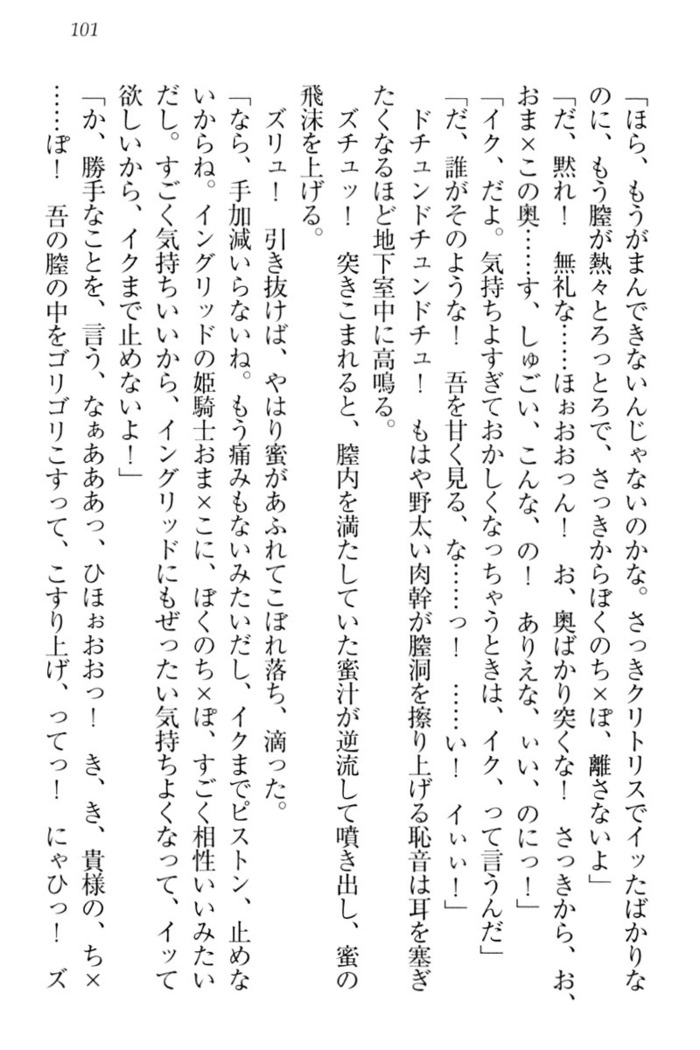 101
「ほら、もうがまんできないんじゃないのかな。さっきクリトリスでイッたばかりな
のに、もう膣が熱々とろっとろで、さっきからぼくのち×ぽ、離さないよ」
「だ、黙れ！　無礼な……ほぉおおっん！　お、奥ばかり突くな！　さっきから、お、
おま×この奥……す、しゅごい、こんな、の！　ありえな、ぃい、のにっ！」
「イク、だよ。気持ちよすぎておかしくなっちゃうときは、イク、って言うんだ」
「だ、誰がそのような！　吾を甘く見る、な……っ！　……い！　イぃぃ！」
　ドチュンドチュンドチュ！　もはや野太い肉幹が膣洞を擦り上げる恥音は耳を塞ぎ
たくなるほど地下室中に高鳴る。
　ズチュッ！　突きこまれると、膣内を満たしていた蜜汁が逆流して噴き出し、蜜の
飛沫を上げる。
　ズリュ！　引き抜けば、やはり蜜があふれてこぼれ落ち、滴った。
「なら、手加減いらないね。もう痛みもないみたいだし、イクまでピストン、止めな
いからね。イングリッドの姫騎士おま×こに、ぼくのち×ぽ、すごく相性いいみたい
だし。すごく気持ちいいから、イングリッドにもぜったい気持ちよくなって、イッて
欲しいから、イクまで止めないよ！」
「か、勝手なことを、言う、なぁあああっ、ひほぉおおっ！　き、き、貴様の、ち×
……ぽ！　吾の膣の中をゴリゴリこすって、こすり上げ、ってっ！　にゃひっ！　ズ